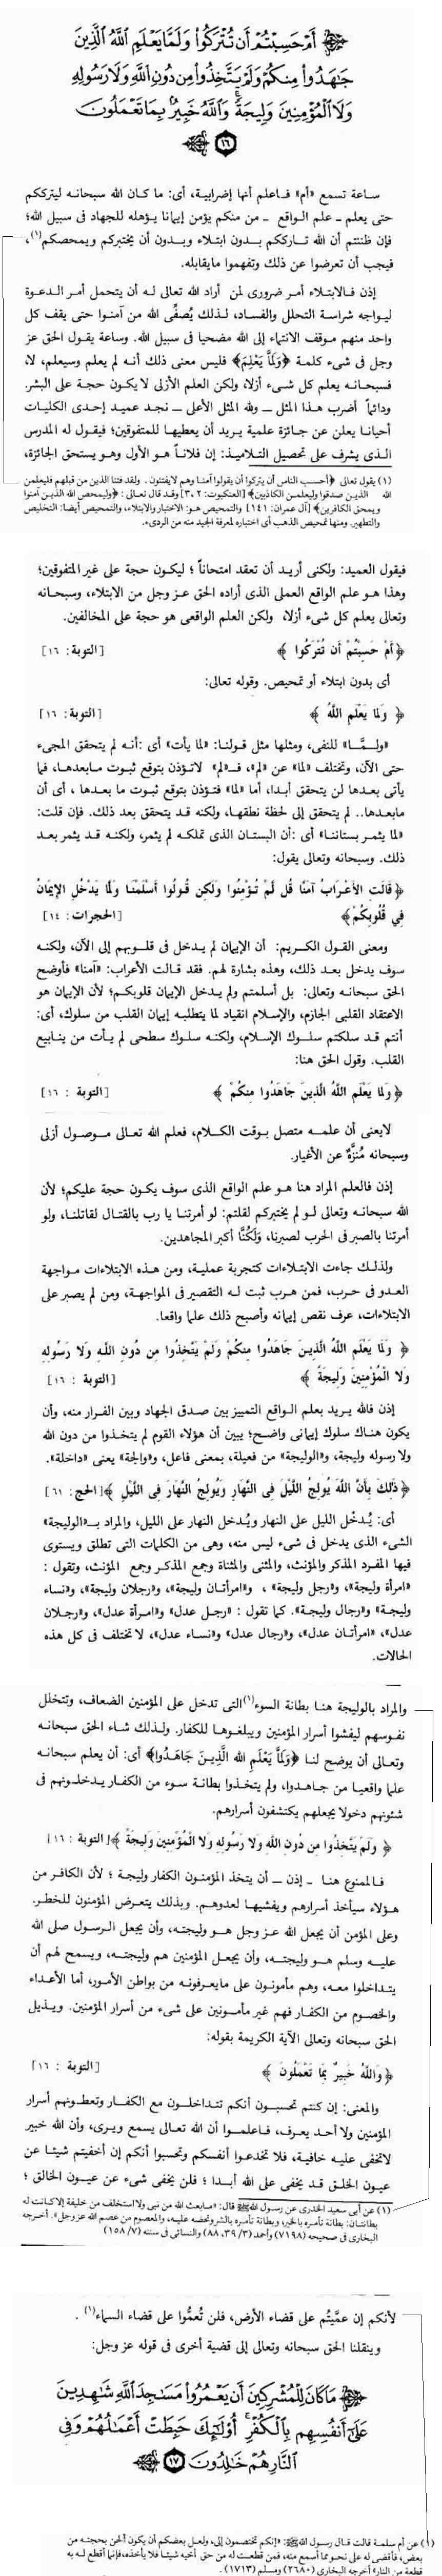 أَمْ حَسِبْتُمْ أَن تُتْرَكُوا۟ وَلَمَّا يَعْلَمِ ٱللَّهُ ٱلَّذِينَ
جَـٰهَدُوا۟ مِنكُمْ وَلَمْ يَتَّخِذُوا۟ مِن دُونِ ٱللَّهِ وَلَا رَسُولِهِۦ
وَلَا ٱلْمُؤْمِنِينَ وَلِيجَةً ۚ وَٱللَّهُ خَبِيرٌۢ بِمَا تَعْمَلُونَ
١٦
ساعة تسمع «أم» فاعلم أنها إضرابية، أى: ما كان الله سبحانه ليترككم
حتى يعلم ـ علم الواقع ـ من منكم يؤمن إيمانا يؤهله للجهاد فى سبيل الله؛
فإن ظننتم أن الله تارككم بدون ابتلاء وبدون أن يختبركم ويمحصكم(١)،
فيجب أن تعرضوا عن ذلك وتفهموا مايقابله.
إذن فالابتلاء أمر ضرورى لمن أراد الله تعالى له أن يتحمل أمر الدعوة
ليواجه شراسة التحلل والفساد، لذلك يُصفِّى الله من آمنوا حتى يقف كل
واحد منهم موقف الانتماء إلى الله مضحيا فى سبيل الله. وساعة يقول الحق عز
وجل فى شىء كلمة ﴿وَلَمَّا يَعْلَمِ﴾ فليس معنى ذلك أنه لم يعلم وسيعلم، لا،
فسبحانه يعلم كل شىء أزلا، ولكن العلم الأزلى لا يكون حجة على البشر.
ودائماً أضرب هذا المثل ـ ولله المثل الأعلى ـ نجد عميد إحدى الكليات
أحيانا يعلن عن جائزة علمية يريد أن يعطيها للمتفوقين؛ فيقول له المدرس
الذى يشرف على تحصيل التلاميذ: إن فلاناً هو الأول وهو يستحق الجائزة،
(١) يقول تعالى ﴿أحسب الناس أن يتركوا أن يقولوا آمنا وهم لايفتنون . ولقد فتنا الذين من قبلهم فليعلمن
الله الذين صدقوا وليعلمن الكاذبين﴾ [العنكبوت: ٢، ٣] وقد قال تعالى: ﴿وليمحص الله الذين آمنوا
ويمحق الكافرين﴾ [آل عمران: ١٤١] والتمحيص هو: الاختبار والابتلاء، والتمحيص أيضا: التخليص
والتطهير. ومنها تمحيص الذهب أى اختباره لمعرفة الجيد منه من الردىء.
فيقول العميد: ولكنى أريد أن تعقد امتحاناً ؛ ليكون حجة على غير المتفوقين؛
وهذا هو علم الواقع العملى الذى أراده الحق عز وجل من الابتلاء، وسبحانه
وتعالى يعلم كل شىء أزلا، ولكن العلم الواقعى هو حجة على المخالفين.
﴿ أَمْ حَسِبْتُمْ أَن تُتْرَكُوا ﴾ [التوبة: ١٦]
أى بدون ابتلاء أو تمحيص. وقوله تعالى:
﴿ وَلَمَا يَعْلَمِ اللَّهُ ﴾ [التوبة: ١٦]
«ولـمَّـا» للنفى، ومثلها مثل قولنا: «لما يأت» أى :أنه لم يتحقق المجىء
حتى الآن، وتختلف «لما» عن «لم»، فـ«لم» لاتؤذن بتوقع ثبوت مابعدها، فما
يأتى بعدها لن يتحقق أبدا، أما «لما» فتؤذن بتوقع ثبوت ما بعدها ، أى أن
مابعدها.. لم يتحقق إلى لحظة نطقها، ولكنه قد يتحقق بعد ذلك. فإن قلت:
«لما يثمر بستاننا» أى :أن البستان الذى تملكه لم يثمر، ولكنه قد يثمر بعد
ذلك. وسبحانه وتعالى يقول:
﴿قَالَتِ الأَعْرَابُ آمَنَّا قُل لَّمْ تُؤْمِنُوا وَلَكِن قُولُوا أَسْلَمْنَا وَلَمَّا يَدْخُلِ الإِيمَانُ
فِي قُلُوبِكُمْ﴾ [الحجرات: ١٤]
ومعنى القول الكريم: أن الإيمان لم يدخل فى قلوبهم إلى الآن، ولكنه
سوف يدخل بعد ذلك، وهذه بشارة لهم. فقد قالت الأعراب: «آمنا» فأوضح
الحق سبحانه وتعالى: بل أسلمتم ولم يدخل الإيمان قلوبكم؛ لأن الإيمان هو
الاعتقاد القلبى الجازم، والإسلام انقياد لما يتطلبه إيمان القلب من سلوك، أى:
أنتم قد سلكتم سلوك الإسلام، ولكنه سلوك سطحى لم يأت من ينابيع
القلب. وقول الحق هنا:
﴿وَلَمَا يَعْلَمِ اللَّهُ الَّذِينَ جَاهَدُوا مِنكُمْ ﴾ [التوبة : ١٦]
لايعنى أن علمه متصل بوقت الكلام، فعلم الله تعالى موصول أزلى
وسبحانه مُنزَّهٌ عن الأغيار.
إذن فالعلم المراد هنا هو علم الواقع الذى سوف يكون حجة عليكم؛ لأن
الله سبحانه وتعالى لو لم يختبركم لقلتم: لو أمرتنا يا رب بالقتال لقاتلنا، ولو
أمرتنا بالصبر فى الحرب لصبرنا، وَلَكُنَّا أكبر المجاهدين.
ولذلك جاءت الابتلاءات كتجربة عملية، ومن هذه الابتلاءات مواجهة
العدو فى حرب، فمن هرب ثبت له التقصير فى المواجهة، ومن لم يصبر على
الابتلاءات، عرف نقص إيمانه وأصبح ذلك علما واقعا.
﴿ وَلَمَا يَعْلَمِ اللَّهُ الَّذِينَ جَاهَدُوا مِنكُمْ وَلَمْ يَتَّخِذُوا مِن دُونِ اللَّهِ وَلا رَسُولِهِ
وَلا الْمُؤْمِنِينَ وَلِيجَةً ﴾ [التوبة : ١٦]
إذن فالله يريد بعلم الواقع التمييز بين صدق الجهاد وبين الفرار منه، وأن
يكون هناك سلوك إيمانى واضح؛ يبين أن هؤلاء القوم لم يتخذوا من دون الله
ولا رسوله وليجة، و«الوليجة» من فعيلة، بمعنى فاعل، و«والجة» يعنى «داخلة».
﴿ ذَلِكَ بِأَنَّ اللَّهَ يُولِجُ اللَّيْلَ فِي النَّهَارِ وَيُولِجُ النَّهَارَ فِي اللَّيْلِ ﴾[الحج: ٦١]
أى: يُدخُل الليل على النهار ويُدخل النهار على الليل، والمراد بـ«الوليجة»
الشىء الذى يدخل فى شىء ليس منه، وهى من الكلمات التى تطلق ويستوى
فيها المفرد المذكر والمؤنث، والمثنى والمثناة وجمع المذكر وجمع المؤنث، وتقول :
«امرأة وليجة»، و«رجل وليجة» ، و«امرأتان وليجة»، و«رجلان وليجة»، و«نساء
وليجة» و«رجال وليجة». كما تقول : «رجل عدل» و«امرأة عدل»، و«رجلان
عدل»، «امرأتان عدل»، و«رجال عدل» و«نساء عدل»، لا تختلف فى كل هذه
الحالات.
والمراد بالوليجة هنا بطانة السوء(١)التى تدخل على المؤمنين الضعاف، وتتخلل
نفوسهم ليفشوا أسرار المؤمنين ويبلغوها للكفار. ولذلك شاء الحق سبحانه
وتعالى أن يوضح لنا ﴿وَلَمَّا يَعْلَمِ اللهُ الَّذِينَ جَاهَدُوا﴾ أى: أن يعلم سبحانه
علما واقعيا من جاهدوا، ولم يتخذوا بطانة سوء من الكفار يدخلونهم فى
شئونهم دخولا يجعلهم يكتشفون أسرارهم.
﴿ وَلَمْ يَتَّخِذُوا مِن دُونِ اللَّهِ وَلا رَسُولِهِ وَلا الْمُؤْمِنِينَ وَلِيجَةً ﴾[ التوبة : ١٦]
فالممنوع هنا ـ إذن ـ أن يتخذ المؤمنون الكفار وليجة ؛ لأن الكافر من
هؤلاء سيأخذ أسرارهم ويفشيها لعدوهم. وبذلك يتعرض المؤمنون للخطر.
وعلى المؤمن أن يجعل الله عز وجل هو وليجته، وأن يجعل الرسول صلى الله
عليه وسلم هو وليجته، وأن يجعل المؤمنين هم وليجته، ويسمح لهم أن
يتداخلوا معه، وهم مأمونون على مايعرفونه من بواطن الأمور، أما الأعداء
والخصوم من الكفار فهم غير مأمونين على شىء من أسرار المؤمنين. ويذيل
الحق سبحانه وتعالى الآية الكريمة بقوله:
﴿وَاللَّهُ خَبِيرٌ بِمَا تَعْمَلُونَ ﴾ [التوبة : ١٦]
والمعنى: إن كنتم تحسبون أنكم تتداخلون مع الكفار وتعطونهم أسرار
المؤمنين ولا أحد يعرف، فاعلموا أن الله تعالى يسمع ويرى، وأن الله خبير
لاتخفى عليه خافية، فلا تخدعوا أنفسكم وتحسبوا أنكم إن أخفيتم شيئا عن
عيون الخلق قد يخفى على الله أبدا ؛ فلن يخفى شىء عن عيون الخالق ؛
(١) عن أبى سعيد الخدرى عن رسول اللهﷺ قال: «مابعث الله من نبى ولا استخلف من خليفة إلا كانت له
بطانتان: بطانة تأمره بالخير، وبطانة تأمره بالشر وتحضه عليه، والمعصوم من عصم الله عز وجل». أخرجه
البخارى فى صحيحه (٧١٩٨) وأحمد (٣/ ٣٩، ٨٨) والنسائى فى سننه (٧/ ١٥٨)
لأنكم إن عمَّيتُم على قضاء الأرض، فلن تُعمُّوا على قضاء السماء(١) .
وينقلنا الحق سبحانه وتعالى إلى قضية أخرى فى قوله عز وجل:
مَا كَانَ لِلْمُشْرِكِينَ أَن يَعْمُرُوا۟ مَسَـٰجِدَ ٱللَّهِ شَـٰهِدِينَ
عَلَىٰٓ أَنفُسِهِم بِٱلْكُفْرِ ۚ أُو۟لَـٰٓئِكَ حَبِطَتْ أَعْمَـٰلُهُمْ وَفِى
ٱلنَّارِ هُمْ خَـٰلِدُونَ ١٧
(١) عن أم سلمة قالت قال رسول اللهﷺ: «إنكم تختصمون إلى، ولعل بعضكم أن يكون ألحن بحجته من
بعض، فأقضى له على نحو مما أسمع منه، فمن قطعت له من حق أخيه شيئا فلا يأخذه، فإنما أقطع له به
قطعة من النار» أخرجه البخارى (٢٦٨٠) ومسلم (١٧١٣) .